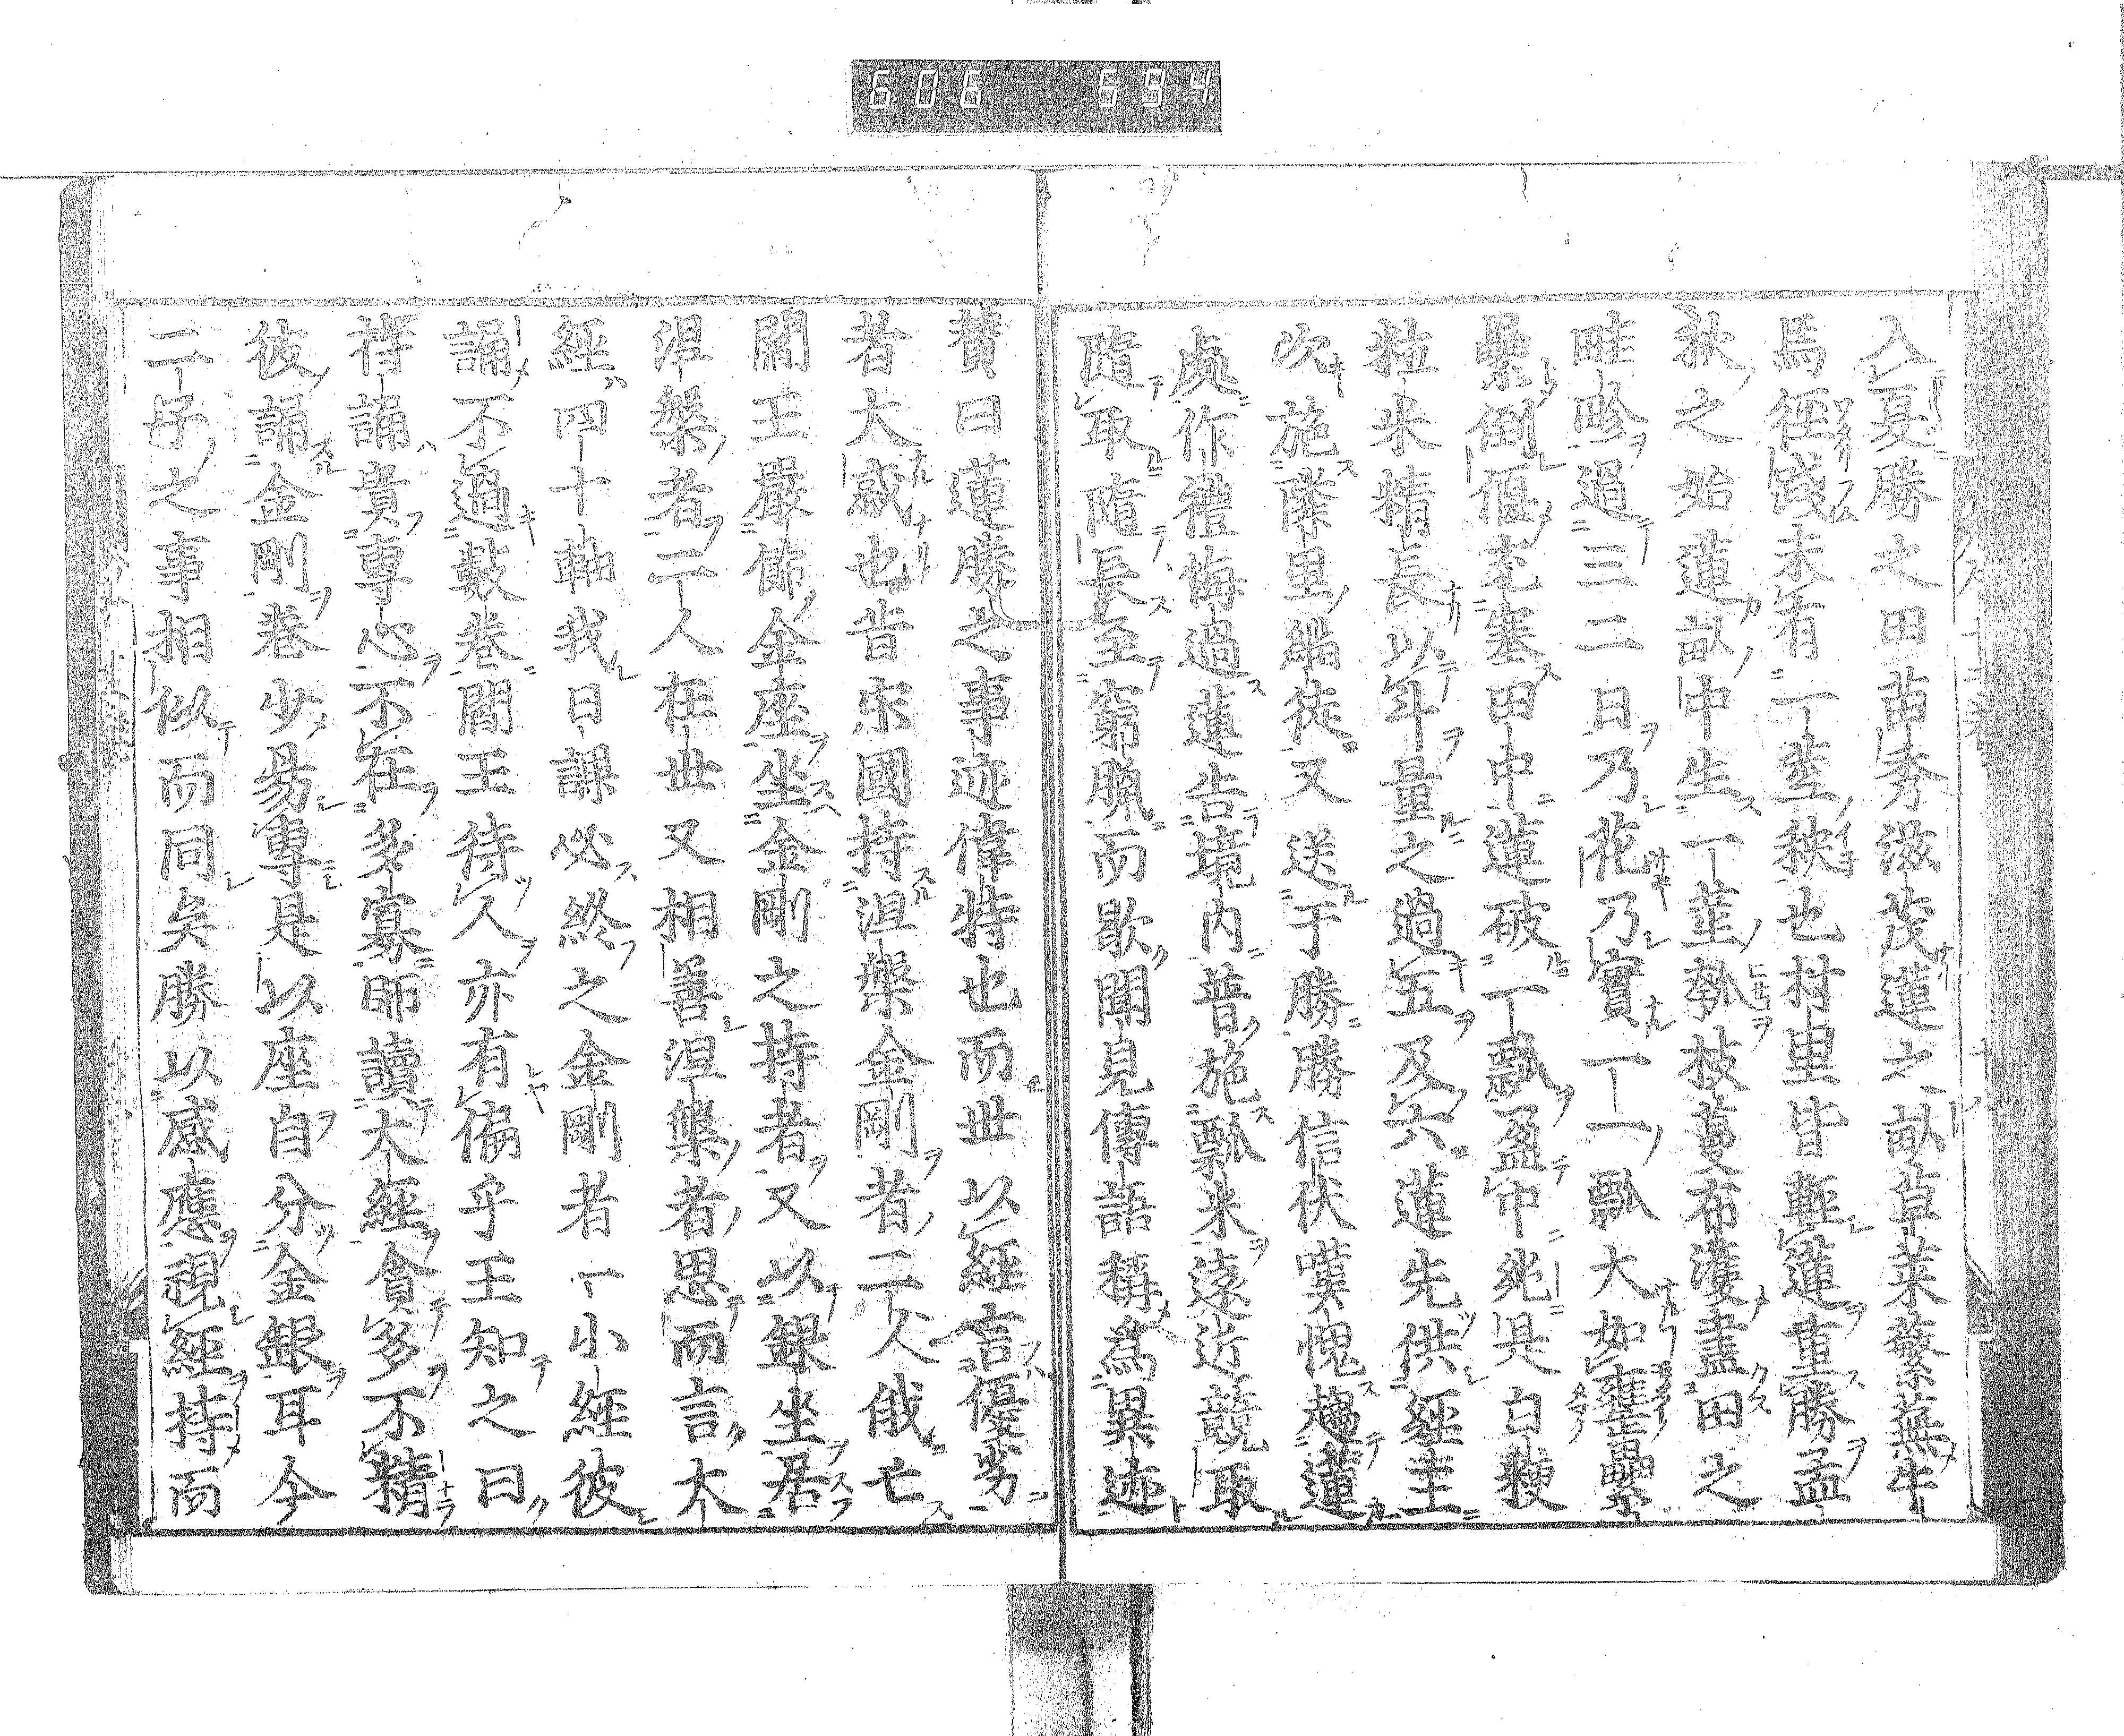 606 594
入夏勝之田苗秀滋茂蓮之畝草萊蘩蕪牛
馬徑踐未有一莖秧也村里皆輕蓮重勝孟
秋之始蓮畝中生一莖瓠枝蔓布濩盡田之
畦畛過三二日乃花乃實一一瓢大如甕罍
纍倒偃充塞田中蓮破一瓢盈中純是白粳
粒米精長以斗量之過五及六蓮先供經王
次施隣里緇徒又送于勝勝信伏嘆愧趨蓮
處作禮悔過蓮告境内普施瓢米遠近競取
隨取隨長至窮臘而歇聞見傳語稱爲異迹
贊曰蓮勝之事迹偉特也而世以經言優劣
者大惑也昔宋國持涅槃金剛者二人俄亡
閻王嚴飾金座坐金剛之持者又以銀坐居
涅槃者二人在世又相善涅槃者思而言大
經四十軸我日課必終之金剛者一小經彼
誦不過數卷閻王待人亦有偏乎王知之曰
持誦貴專心不在多寡師讀大經貪多不精
彼誦金剛卷少易專是以座自分金銀耳今
二子之事相似而同矣勝以感應視經持而